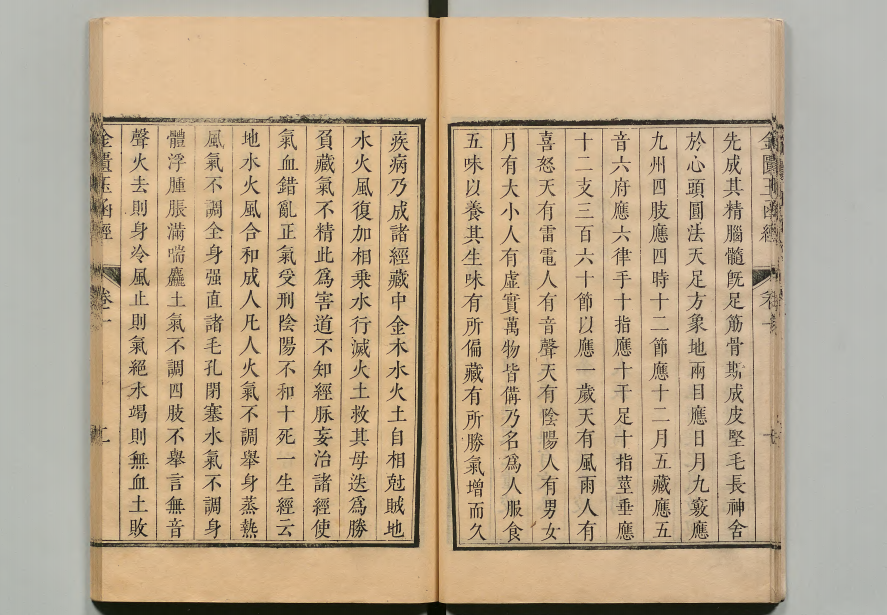 金匱玉函經
先成其精腦髓旣足筋骨斯成皮堅毛長神舍
於心頭圓法天足方象地兩目應日月九竅應
九州四肢應四時十二節應十二月五藏應五
音六府應六律手十指應十干足十指莖垂應
十二支三百六十節以應一歲天有風雨人有
喜怒天有雷電人有音聲天有陰陽人有男女
月有大小人有虛實萬物皆備乃名爲人服食
五味以養其生味有所偏藏有所勝氣增而久
疾病乃成諸經藏中金木水火土自相尅賊地
水火風復加相乗水行滅火土救其母迭爲勝
負藏氣不精此爲害道不知經脉妄治諸經使
氣血錯亂正氣受刑陰陽不和十死一生經云
地水火風合和成人凡人火氣不調舉身蒸熱
風氣不調全身强直諸毛孔閉塞水氣不調身
體浮腫脹滿喘麤土氣不調四肢不舉言無音
聲火去則身冷風止則氣絕水竭則無血土敗
金匱玉函經 卷一